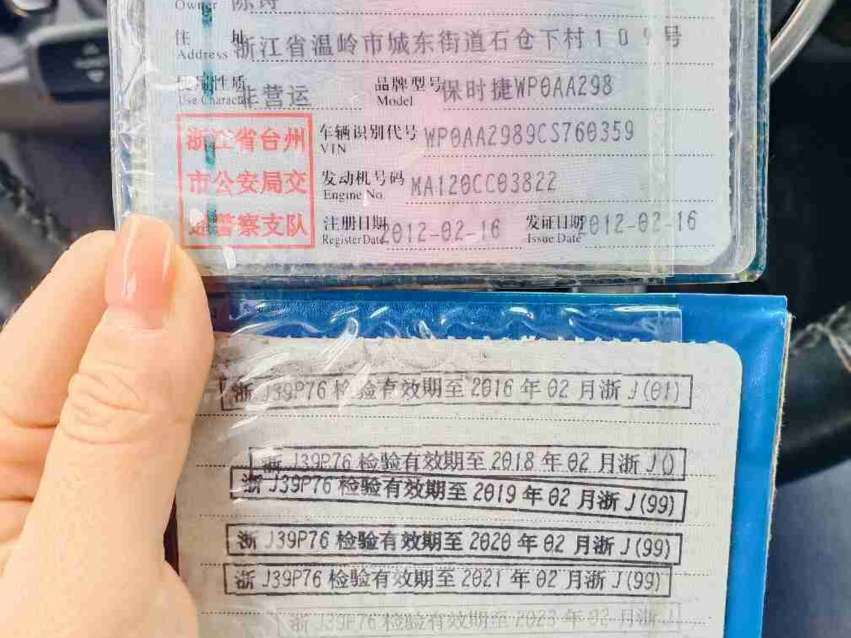 Owner 陈
住 址 Address 浙江省温岭市城东街道石仓下村109号
使用性质 Use Character 非营运 品牌型号 Model 保时捷WP0AA298
浙江省台州 市公安局交 通警察支队
车辆识别代号 VIN WP0AA2989CS760359
发动机号码 Engine No. MA120CC03822
注册日期 Register Date 2012-02-16 发证日期 Issue Date 2012-02-16
浙 J39P76 检验有效期至 2016 年 02 月浙 J(01)
浙 J39P76 检验有效期至 2018 年 02 月浙 J()
浙 J39P76 检验有效期至 2019 年 02 月浙 J(99)
浙 J39P76 检验有效期至 2020 年 02 月浙 J(99)
浙 J39P76 检验有效期至 2021 年 02 月浙 J(99)
浙 J39P76 检验有效期至 2023 年 02 月浙 J